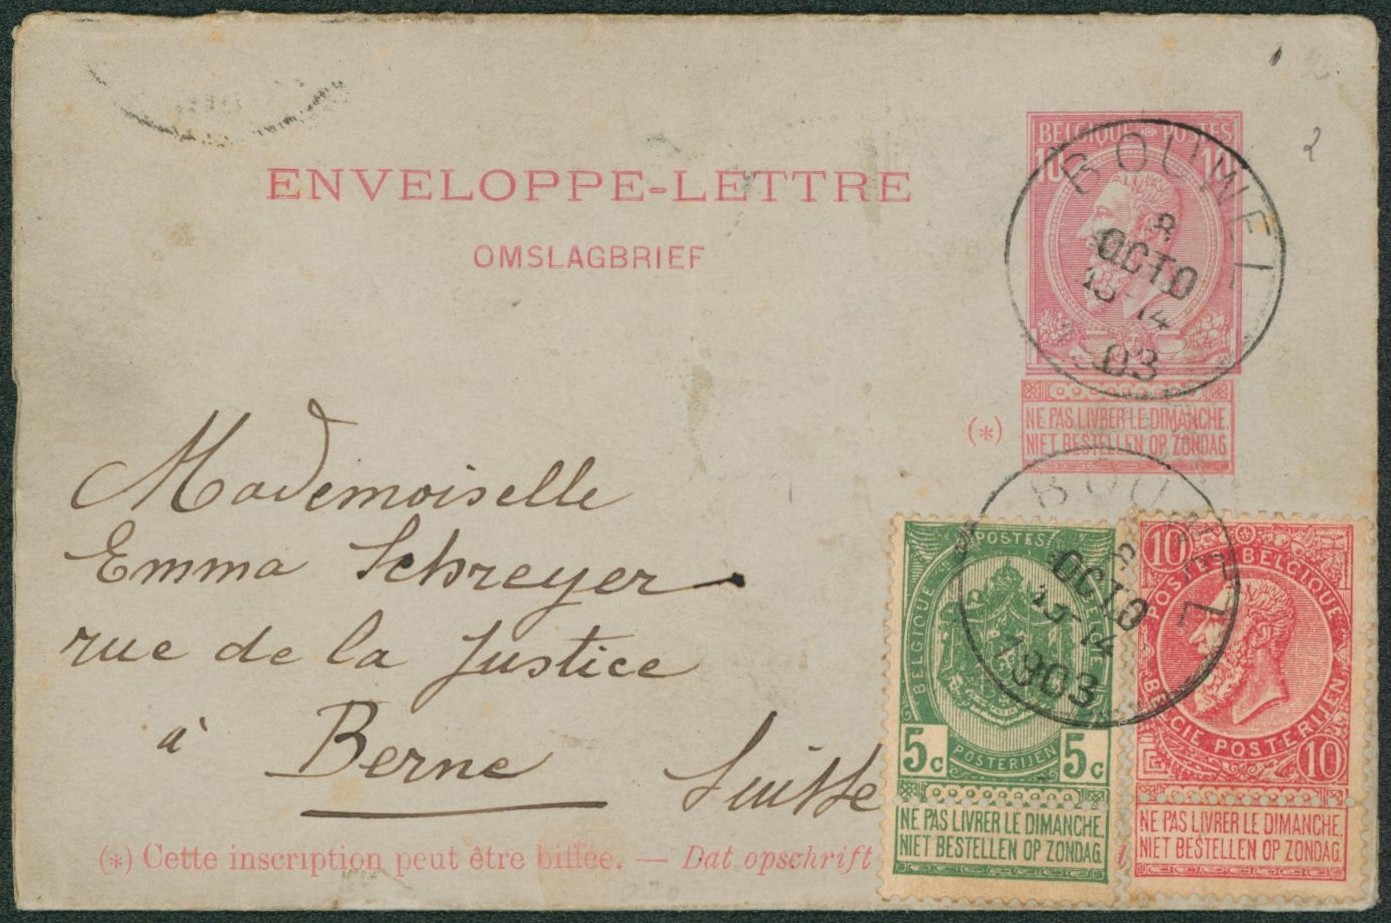 BELGIQUE POSTES
10 10
BOUWEL
8
OCTO
13-14
1903
ENVELOPPE-LETTRE
OMSLAGBRIEF
(*)
NE PAS LIVRER LE DIMANCHE.
NIET BESTELLEN OP ZONDAG
Mademoiselle
Emma Schreyer
rue de la Justice
à Berne Suisse
BOUWEL
8
OCTO
13-14
1903
POSTES
BELGIQUE
BELGIE
POSTERIJEN
5c 5c
NE PAS LIVRER LE DIMANCHE.
NIET BESTELLEN OP ZONDAG
10
POSTES BELGIQUE
BELGIE POSTERIJEN
10
NE PAS LIVRER LE DIMANCHE.
NIET BESTELLEN OP ZONDAG
(*) Cette inscription peut être biffée. — Dat opschrift
2